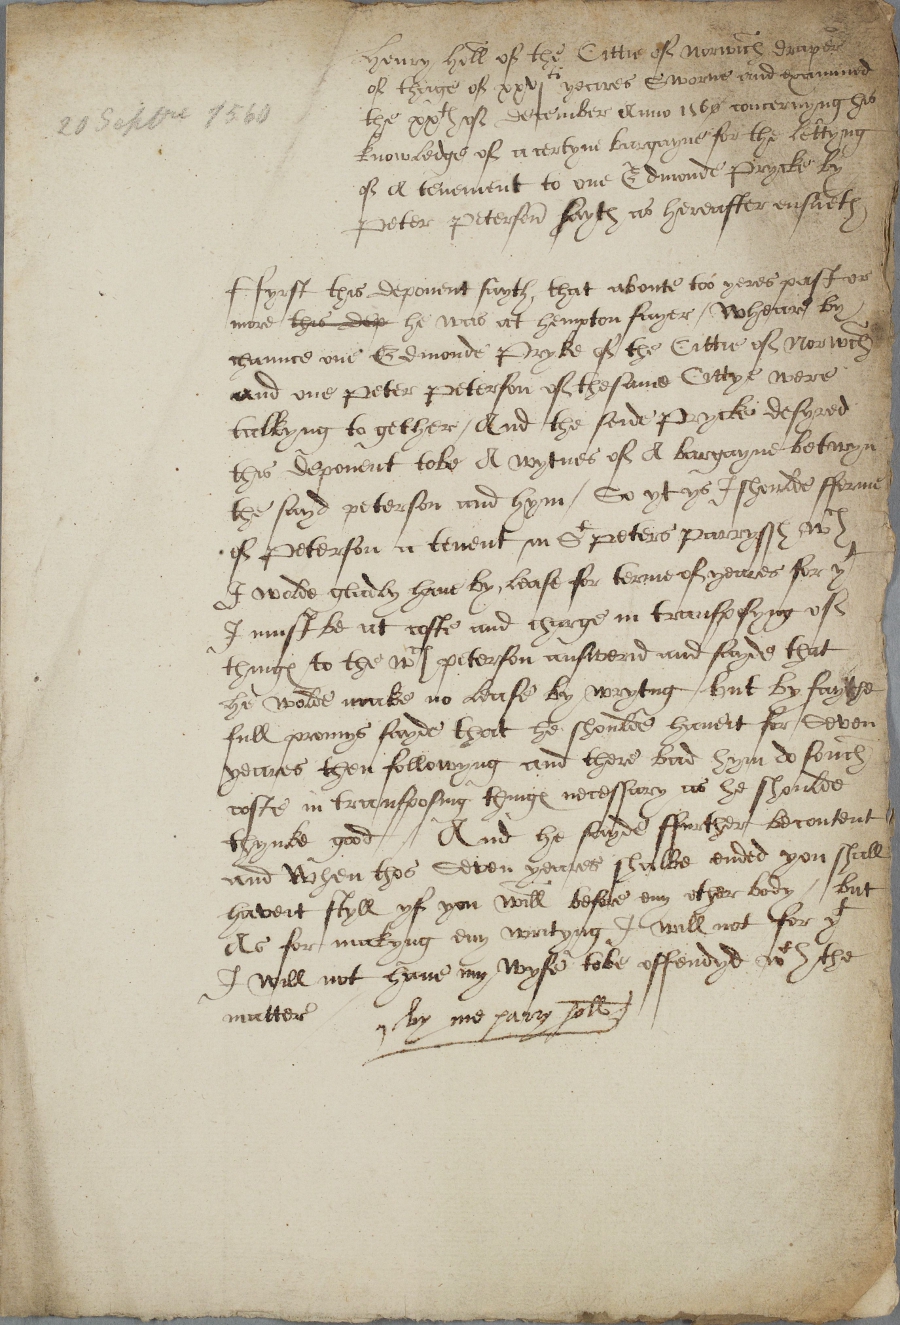 20 Septre 1560
Henry Holl of the Cittie of Norwich draper
of thage of xxvjti yeares Sworne and examined
the xxth of december Anno 1560 concernyng his
knowledge of a certyne bargayne for the lettyng
of A tenement to one Edmonde Prycke by
Peter Peterson sayth as hereafter ensueth
Ffyrst this deponent sayth, that aboute too yeres past or
more this dep he was at hempton fayer / Wheare by
chaunce one Edmonde Pryke of the Cittie of Norwch
and one Peter Peterson of thesame Cittye were
talkyng to gether / And the seide Prycke desyred
this deponent tobe A wytnes of A bargayne betwyn
the sayd peterson and hym / So yt ys I shoulde fferme
of Peterson a tenent in St peters parrysh wch
I wolde gladly have by lease for terme of yeares for yt
I must be at coste and charge in transposyng of
thinges to the wch peterson answerid and sayde that
he wolde make no lease by wrytng but by faythe
full promys sayde that he shoulde haveit for Seven
yeares then followyng and there bad hym do souch
coste in transposing thinges necessary as he shoulde
thynke good / And he sayde ffurther becontent
and When thos Seven yeares shalbe ended you shall
haveit styll yf you will before eny other body / but
As for makyng eny writyng I will not for yt
I will not have my Wyfe tobe offendyd wth the
matter
by me harry holl